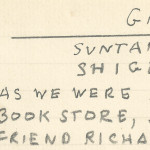 SUNTA
SHIG
AS WE WERE
BOOK STORE,
FRIEND RICHA